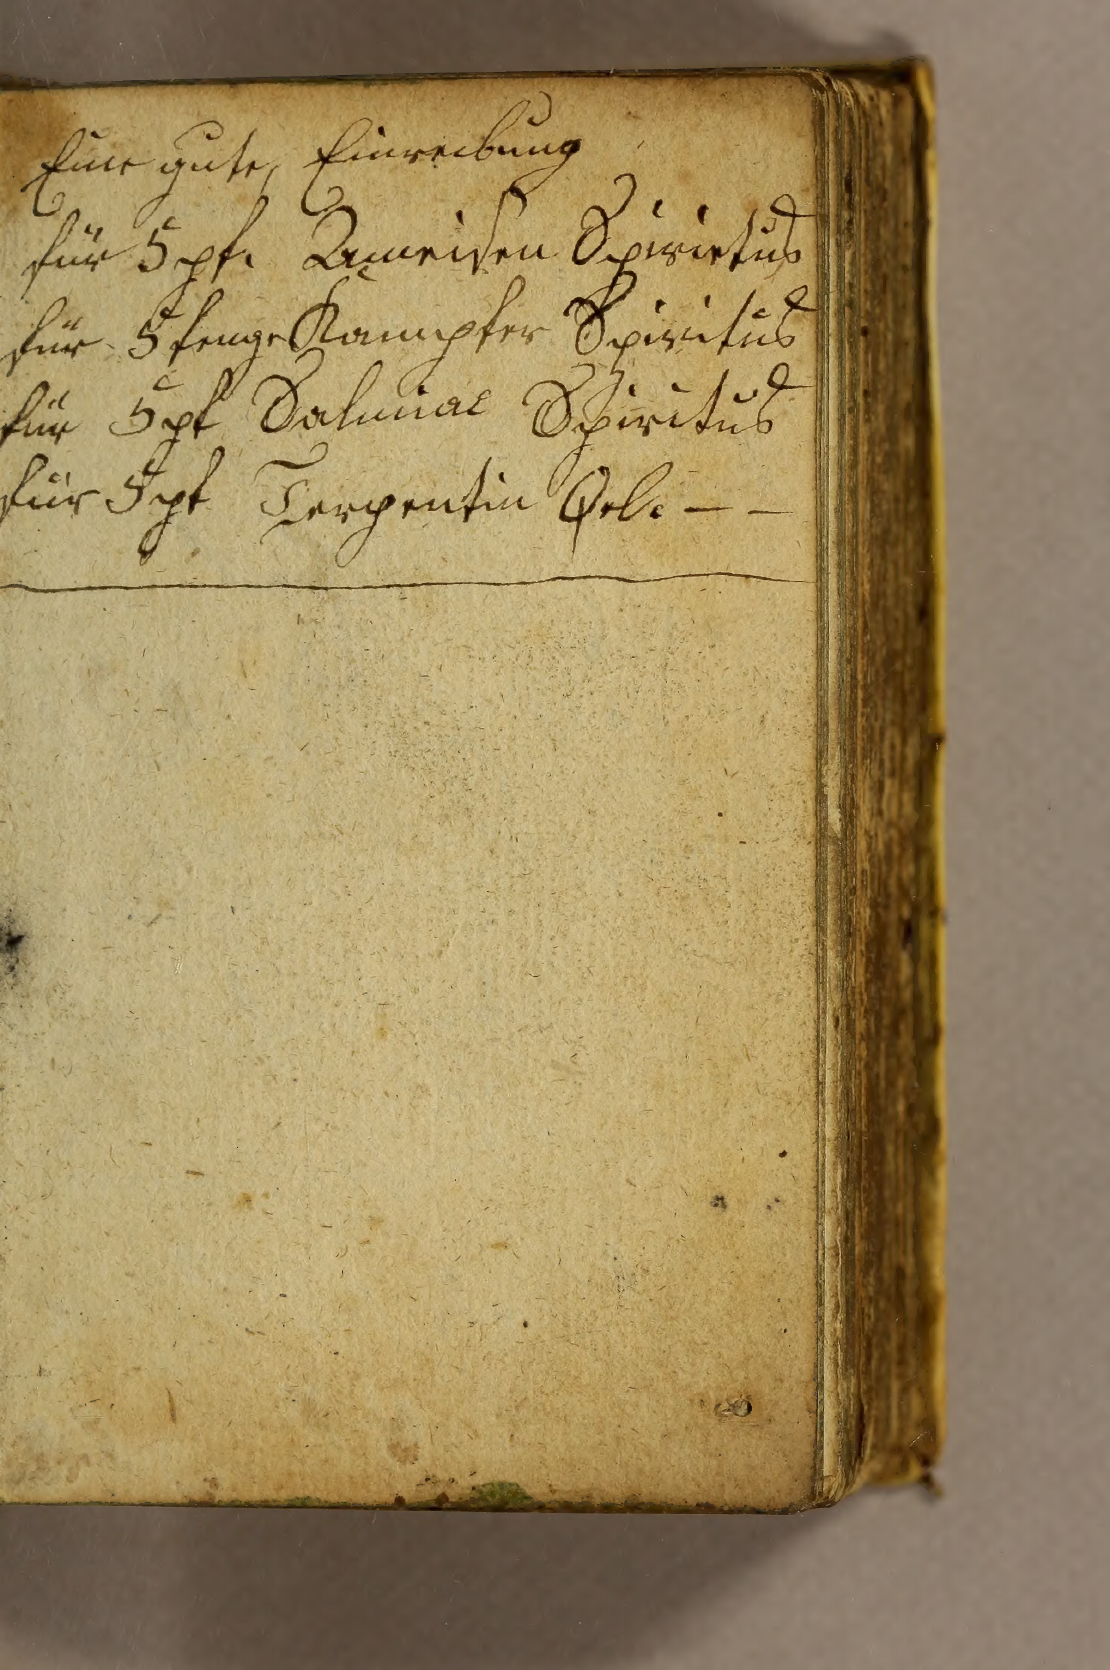 Eine gute, Einreibung
für 5 pf. Ameisen Spirietus
für 5 fenge Kampfer Spiritus
für 5 pf Salmiac Spiritus
für 5 pf Terpentin Oel. — —